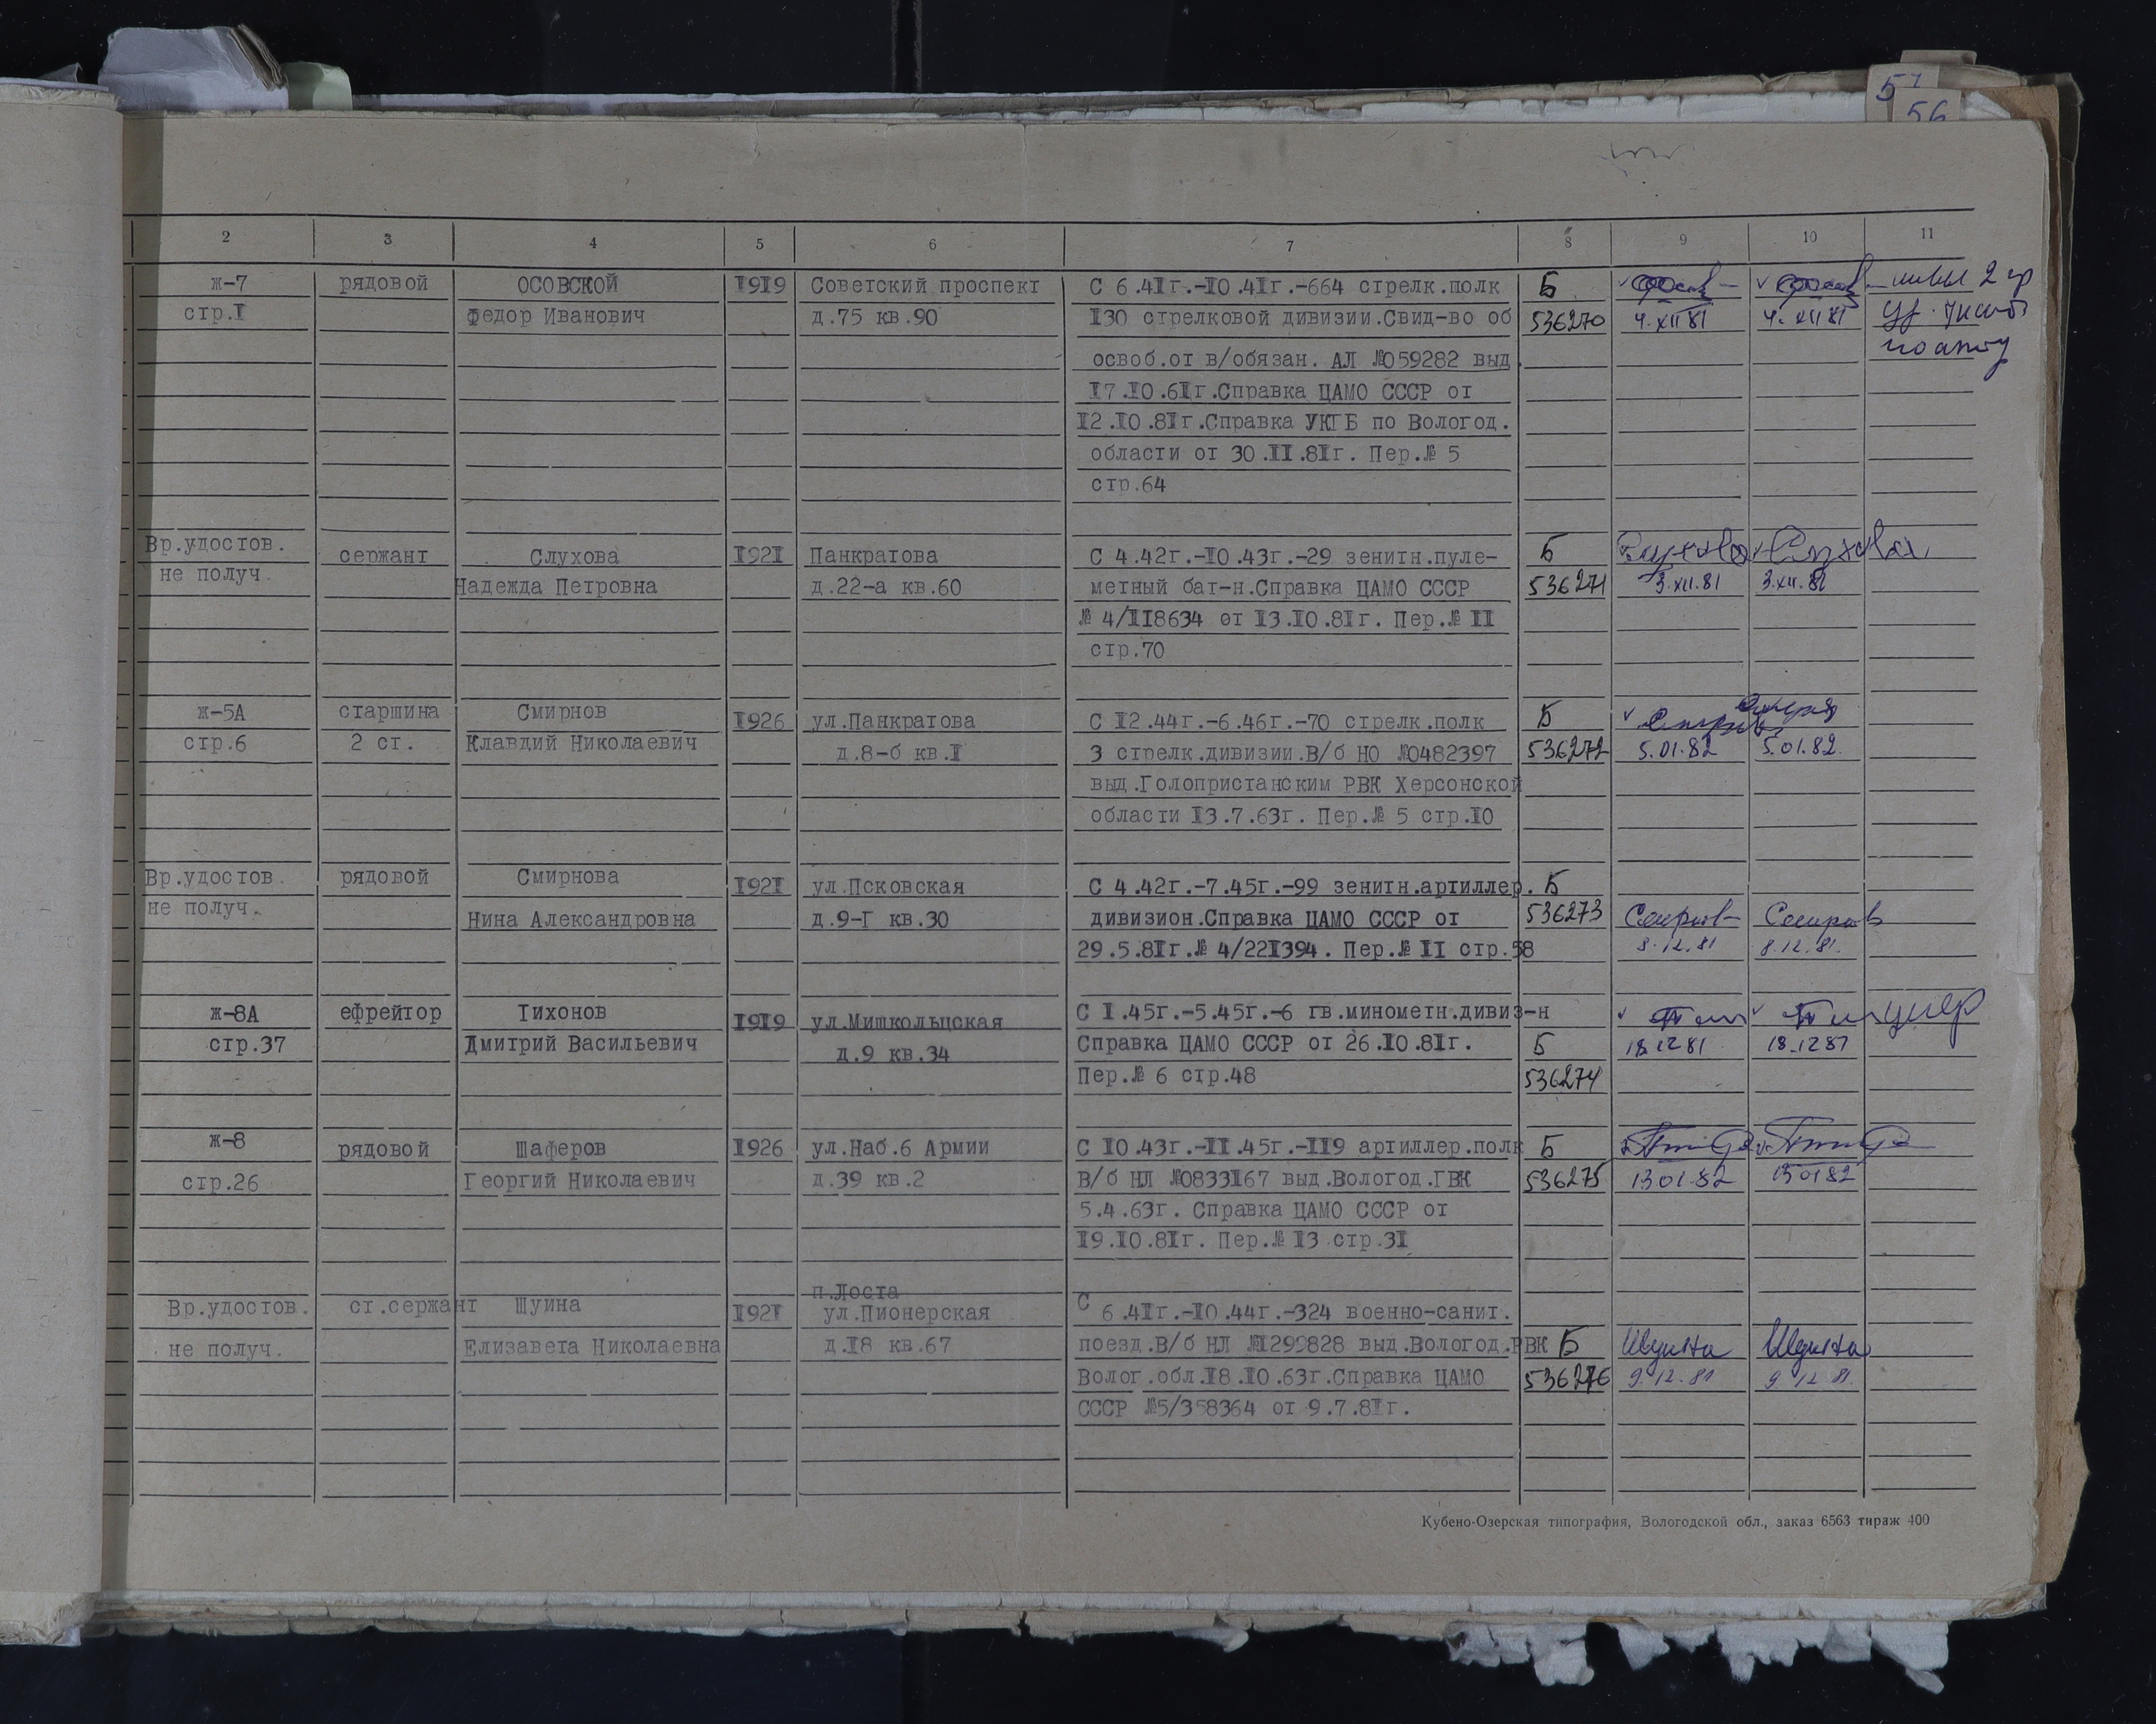 57
56
2 3 4 5 6 7 8 9 10 11
ж-7 рядовой ОСОВСКОЙ I9I9 Советский проспект С 6.4Iг.-I0.4Iг.-664 стрелк.полк Б 2 гр
стр.I Федор Иванович д.75 кв.90 I30 стрелковой дивизии.Свид-во об 536270 4.XII 81 4.XII 81
освоб.от в/обязан. АЛ №059282 выд.
I7.I0.6Iг.Справка ЦАМО СССР от
I2.I0.8Iг.Справка УКГБ по Вологод.
области от 30.II.8Iг. Пер.№ 5
стр.64
Вр.удостов. сержант Слухова I92I Панкратова С 4.42г.-I0.43г.-29 зенитн.пуле- Б Слухова Слухова
не получ. Надежда Петровна д.22-а кв.60 метный бат-н.Справка ЦАМО СССР 536271 3.XII.81 3.XII.81
№ 4/II8634 от I3.I0.8Iг. Пер.№ II
стр.70
ж-5А старшина Смирнов I926 ул.Панкратова С I2.44г.-6.46г.-70 стрелк.полк Б
стр.6 2 ст. Клавдий Николаевич д.8-б кв.I 3 стрелк.дивизии.В/б НО №0482397 536272 5.01.82 5.01.82.
выд.Голопристанским РВК Херсонской
области I3.7.63г. Пер.№ 5 стр.I0
Вр.удостов. рядовой Смирнова I92I ул.Псковская С 4.42г.-7.45г.-99 зенитн.артиллер. Б
не получ. Нина Александровна д.9-Г кв.30 дивизион.Справка ЦАМО СССР от 536273
29.5.8Iг.№ 4/22I394. Пер.№ II стр.58 8.12.81 8.12.81.
ж-8А ефрейтор Тихонов I9I9 ул.Мишкольцская С I.45г.-5.45г.-6 гв.минометн.дивиз-н
стр.37 Дмитрий Васильевич д.9 кв.34 Справка ЦАМО СССР от 26.I0.8Iг. Б 18.12 81 18.12 81
Пер.№ 6 стр.48 536274
ж-8 рядовой Шаферов I926 ул.Наб.6 Армии С I0.43г.-II.45г.-II9 артиллер.полк Б
стр.26 Георгий Николаевич д.39 кв.2 В/б НЛ №0833I67 выд.Вологод.ГВК 536275 13 01.82 13 01 82
5.4.63г. Справка ЦАМО СССР от
I9.I0.8Iг. Пер.№ I3 стр.3I
п.Лоста
Вр.удостов. ст.сержант Шуина I92I ул.Пионерская С 6.4Iг.-I0.44г.-324 военно-санит.
не получ. Елизавета Николаевна д.I8 кв.67 поезд.В/б НЛ №I299828 выд.Вологод.РВК Б Шуина Шуина
Волог.обл.I8.I0.63г.Справка ЦАМО 536276 9.12.81 9.12.81
СССР №5/358364 от 9.7.8Iг.
Кубено-Озерская типография, Вологодской обл., заказ 6563 тираж 400